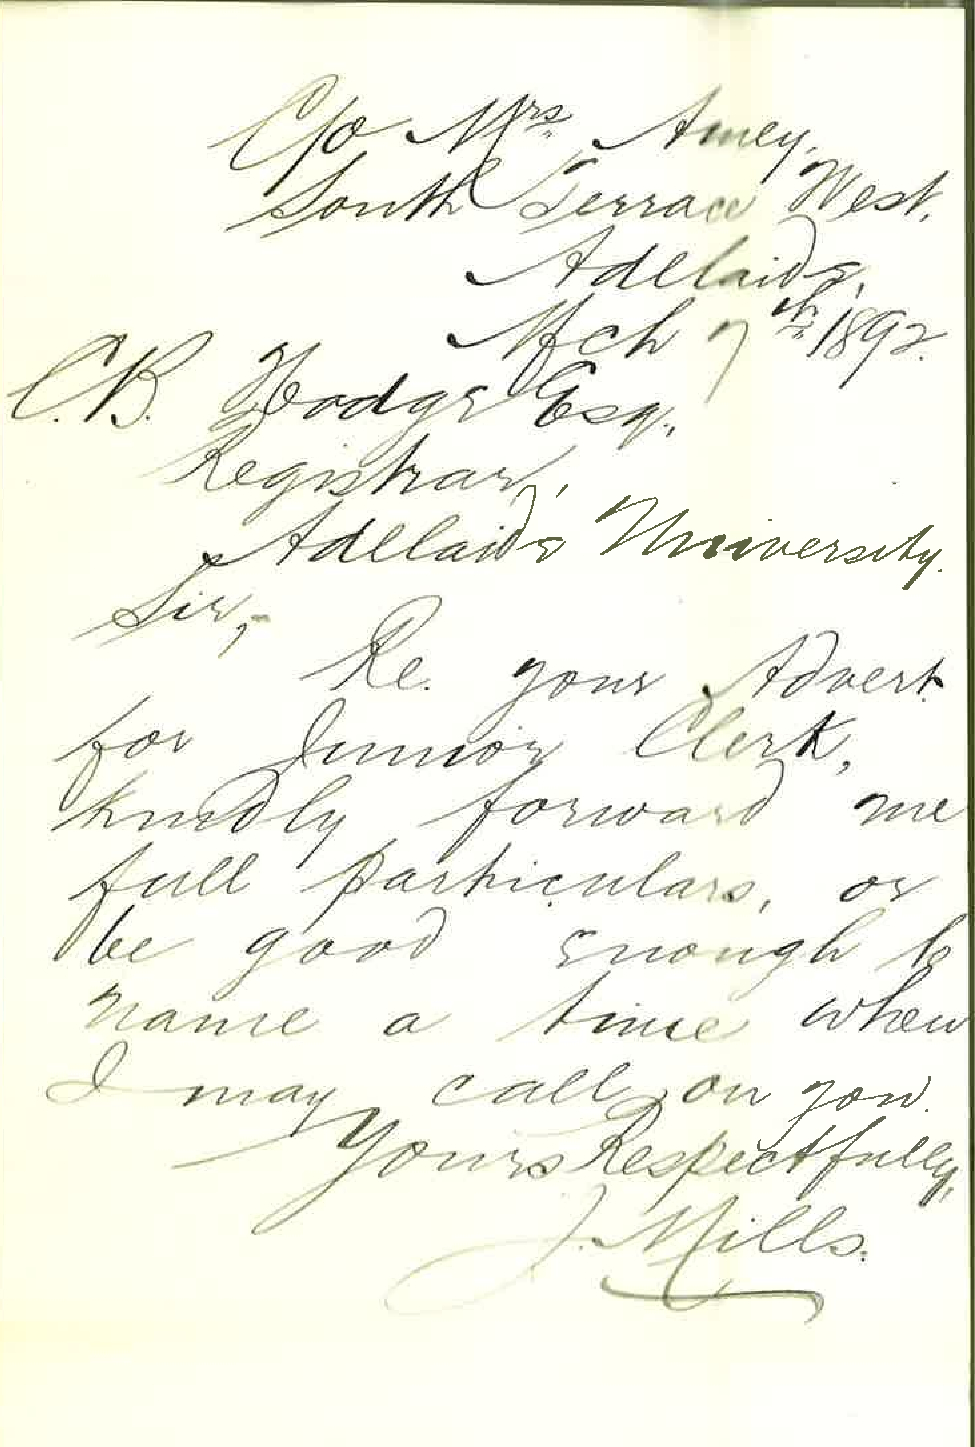 C/o Mrs. Amey,
South Terrace West,
Adelaide,
Mch 7th 1892.
C.B. Hodge Esq.,
Registrar,
Adelaide University.
Sir,-
Re. your Advert.
for Junior Clerk,
kindly forward me
full particulars, or
be good enough to
name a time when
I may call on you.
Yours Respectfully,
J. Mills.